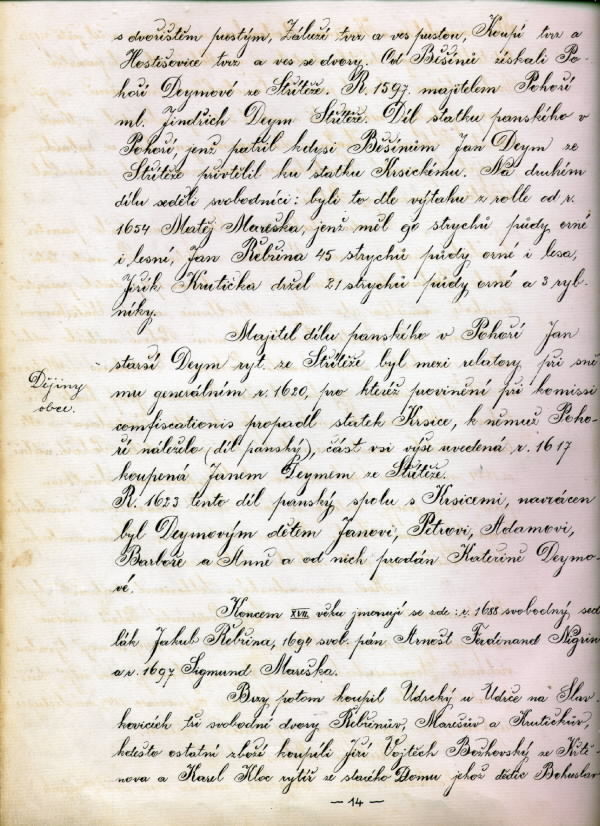 s dvořištěm pustým, Zálužé tvrz a ves pustou, Koupí tvrz a
Hostišovice tvrz a ves se dvory. Od Běšínů získali Po-
hoří Deymové ze Stříteže. R. 1597. majitelem Pohoří
ml. Jindřich Deym Stříteže. Díl statku panského v
Pohoří, jenž patřil kdysi Běšínům Jan Deym ze
Stříteže přivtělil ku statku Krsickému. Na druhém
dílu seděli svobodníci: byli to dle výtahu z rolle od r.
1654 Matěj Mareška, jenž měl 90 strychů půdy orné
i lesní, Jan Řebřina 45 strychů půdy orné i lesa,
Jiřík Krutička držel 21 strychů půdy orné a 3 ryb-
níky.
Majitel dílu panského v Pohoří Jan
starší Deym ryt. ze Stříteže byl mezi relatory při sně
mu generálním r. 1620, pro kteréž provinění při komissi
Dějiny
obce.
comfiscationis propadl statek Krsice, k němuž Poho-
ří náleželo (díl panský), část vsi výše uvedená r. 1617
koupená Janem Deymem ze Stříteže.
R. 1623 tento díl panský spolu s Krsicemi, navrácen
byl Deymovým dětem Janovi, Petrovi, Adamovi,
Barboře a Anně a od nich prodán Kateřině Deymo-
vé.
Koncem XVII. věku jmenují se zde: r. 1688 svobodný sed
lák Jakub Řebřina, 1694 svob. pán Arnošt Ferdinand Nigrin
a r. 1697 Sigmund Mareška.
Brzy potom koupil Údrcký u Údrče na Slav-
kovicích tři svobodné dvory Řebřinův, Marešův a Krutičkův,
kdežto ostatní zboží koupili Jiří Vojtěch Božkovský ze Křtě-
nova a Karel Kloc rytíř ze starého Domu jehož dědic Bohuslav
— 14 —